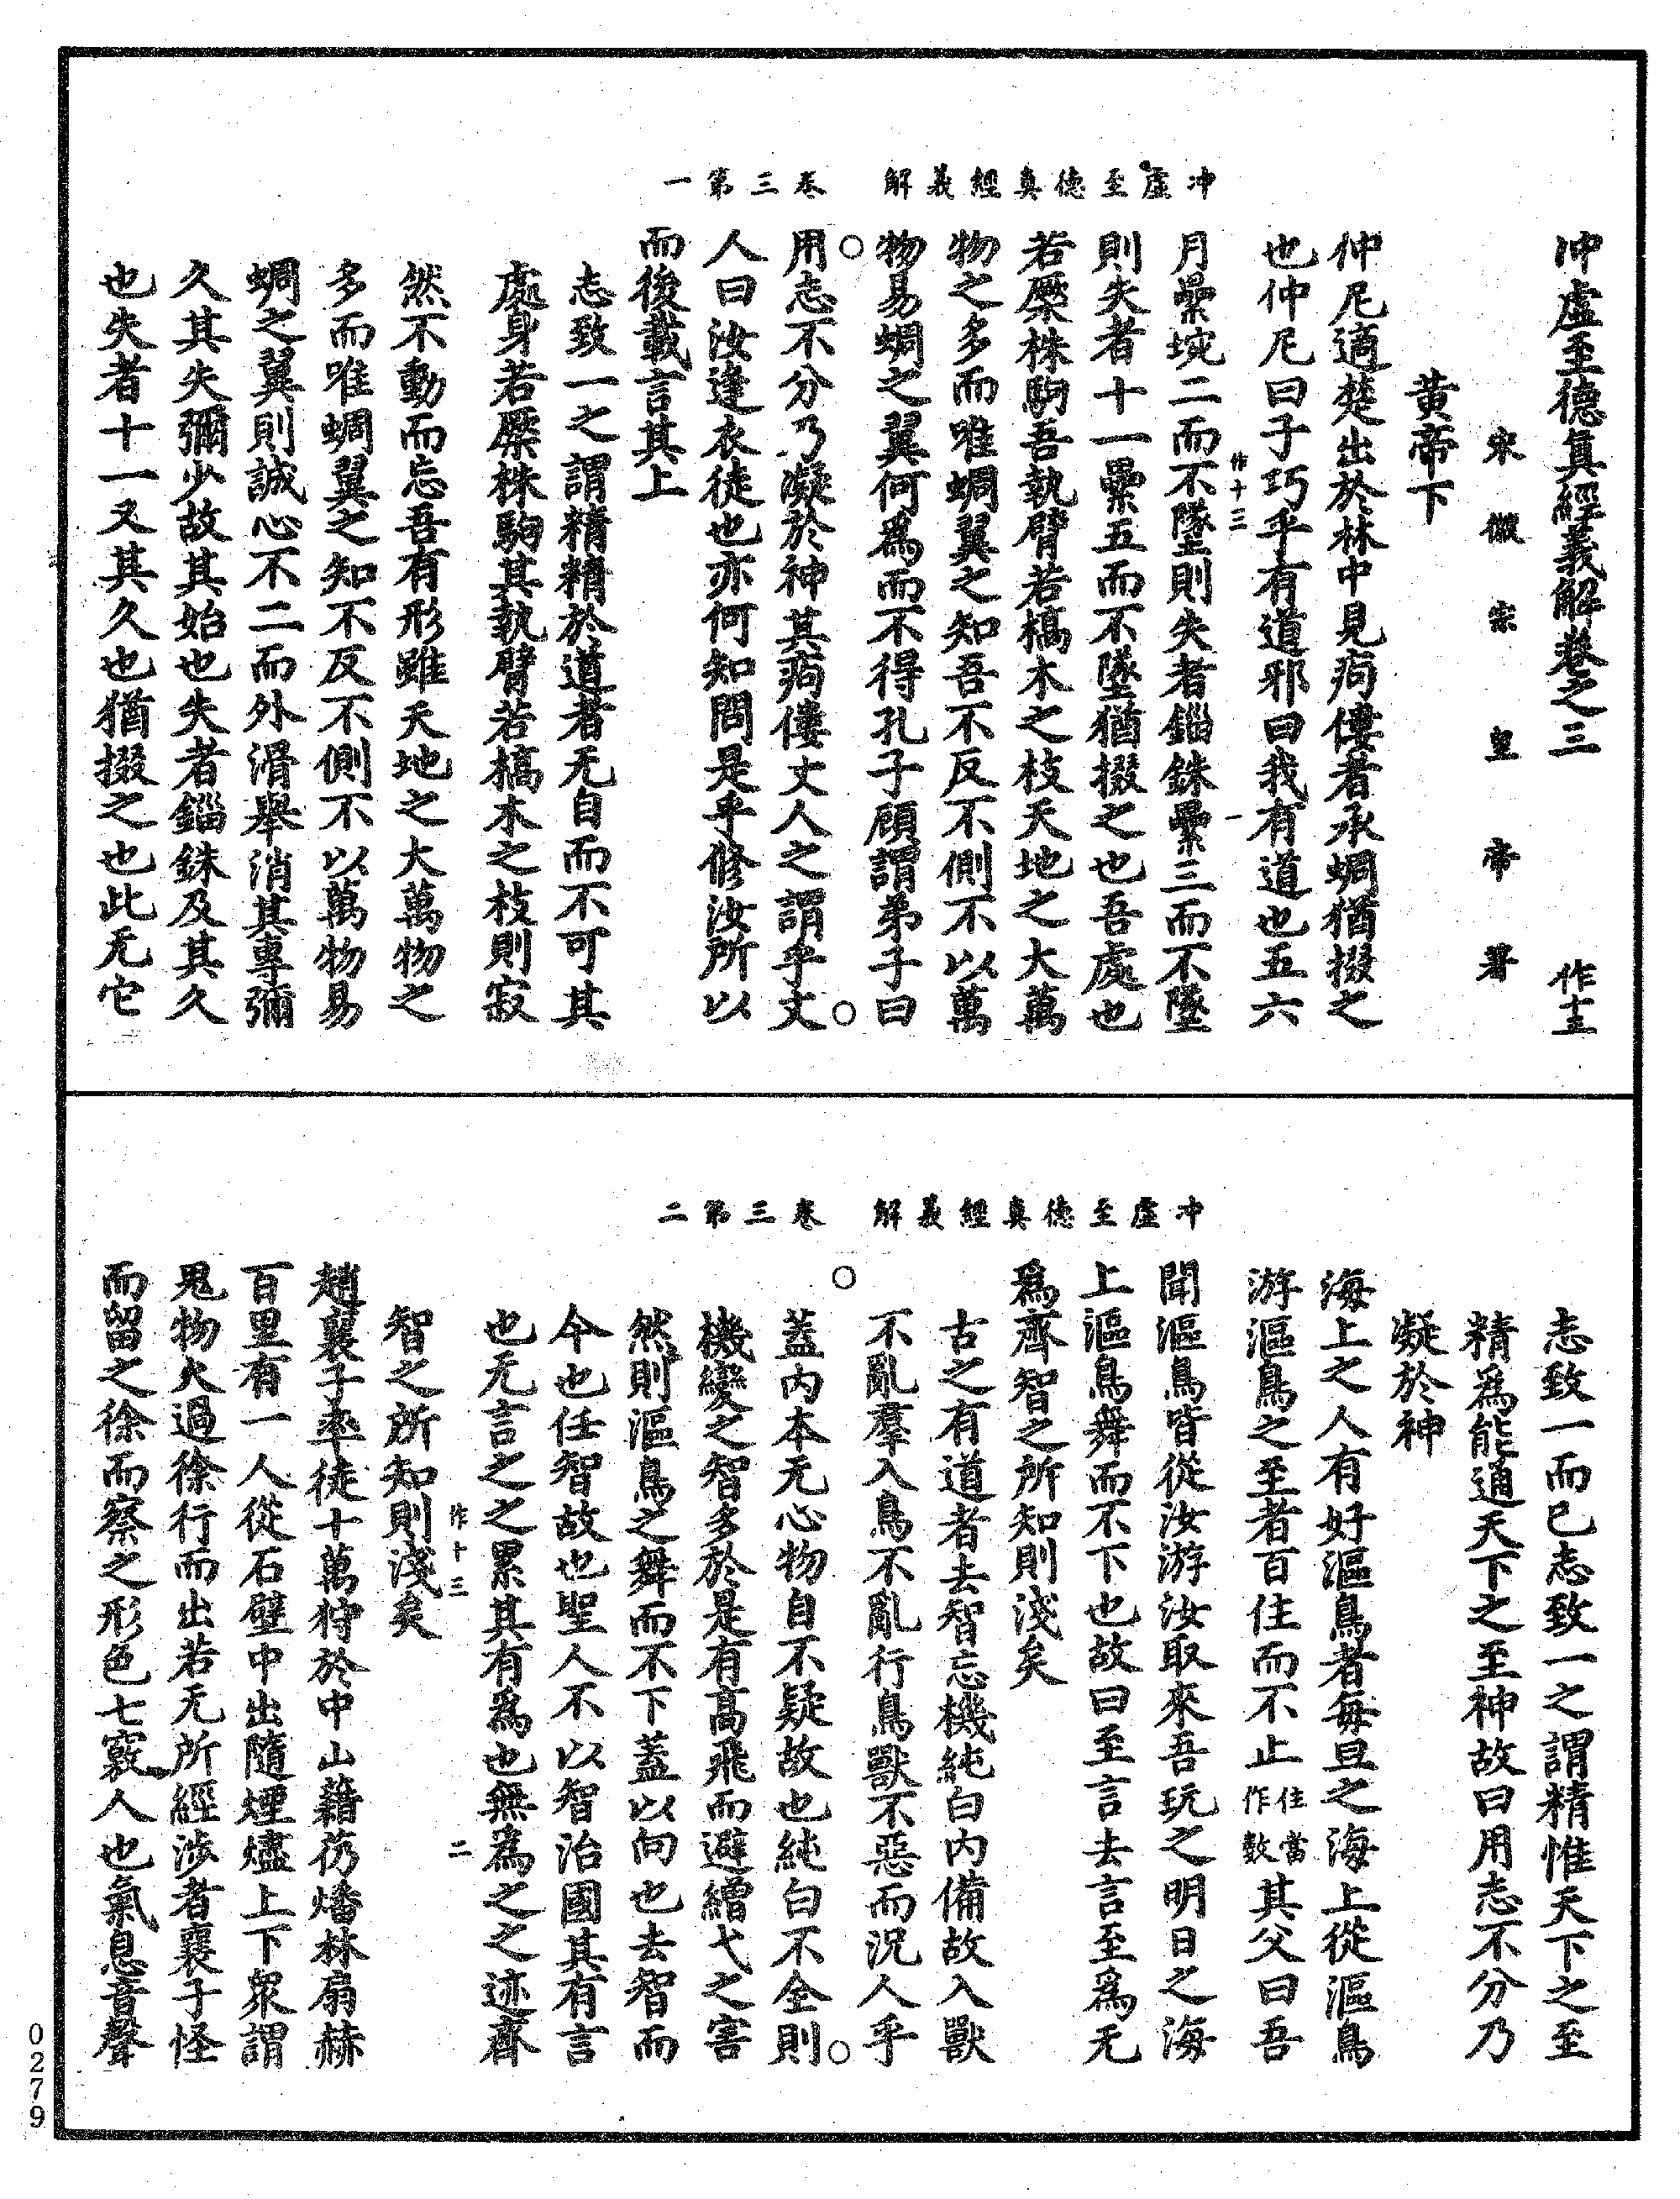 冲虛至德真經義解 卷三第一
冲虛至德真經義解卷之三 作十三
宋徽宗皇帝著
黃帝下
仲尼適楚出於林中見痀僂者承蜩猶掇之
也仲尼曰子巧乎有道邪曰我有道也五六
作十三 一
月纍垸二而不墜則失者錙銖纍三而不墜
則失者十一纍五而不墜猶掇之也吾處也
若橜株駒吾執臂若槁木之枝天地之大萬
物之多而唯蜩翼之知吾不反不側不以萬
物易蜩之翼何為而不得孔子顧謂弟子曰
用志不分乃凝於神其痀僂丈人之謂乎丈
人曰汝逢衣徒也亦何知問是乎修汝所以
而後載言其上
志致一之謂精精於道者无自而不可其
處身若橜株駒其執臂若槁木之枝則寂
然不動而忘吾有形雖天地之大萬物之
多而唯蜩翼之知不反不側不以萬物易
蜩之翼則誠心不二而外滑舉消其專彌
久其失彌少故其始也失者錙銖及其久
也失者十一又其久也猶掇之也此无它
冲虛至德真經義解 卷三第二
志致一而已志致一之謂精惟天下之至
精為能通天下之至神故曰用志不分乃
凝於神
海上之人有好漚鳥者每旦之海上從漚鳥
游漚鳥之至者百住而不止住當作數其父曰吾
聞漚鳥皆從汝游汝取來吾玩之明日之海
上漚鳥舞而不下也故曰至言去言至為无
為齊智之所知則淺矣
古之有道者去智忘機純白內備故入獸
不亂羣入鳥不亂行鳥獸不惡而況人乎
蓋內本无心物自不疑故也純白不全則
機變之智多於是有高飛而避繒弋之害
然則漚鳥之舞而不下蓋以向也去智而
今也任智故也聖人不以智治國其有言
也无言之之累其有為也無為之之迹齊
作十三 二
智之所知則淺矣
趙襄子率徒十萬狩於中山藉芿燔林扇赫
百里有一人從石壁中出隨煙燼上下眾謂
鬼物火過徐行而出若无所經涉者襄子怪
而留之徐而察之形色七竅人也氣息音聲
0279